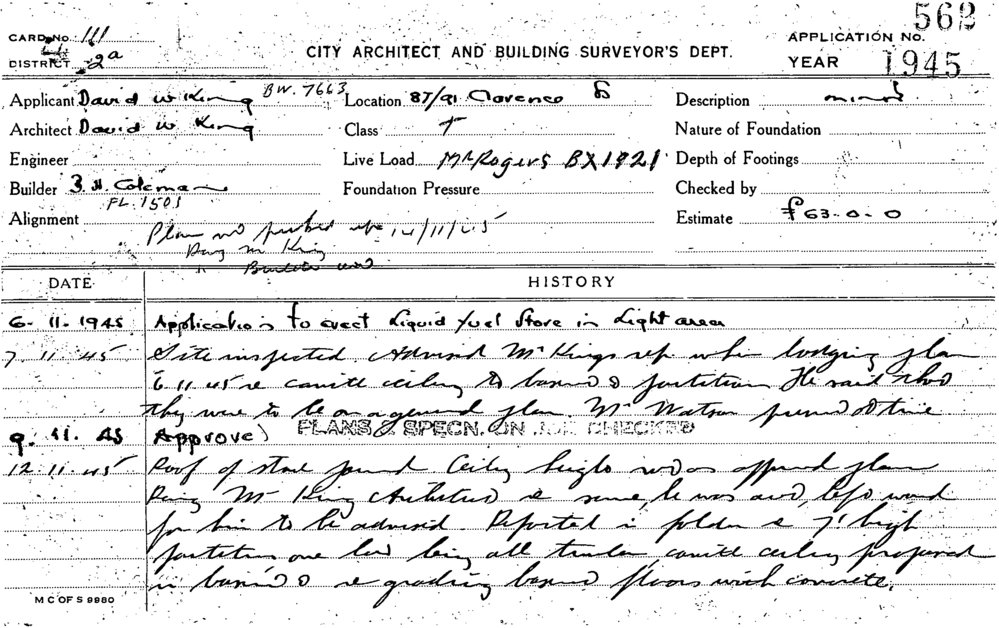 562
CARD No 111
APPLICATION No.
DISTRICT 2a
CITY ARCHITECT AND BUILDING SURVEYOR'S DEPT.
YEAR 1945
Applicant David W King BW. 7663 Location 87/91 Clarence Description minor
Architect David W King Class Nature of Foundation
Engineer Live Load Mr Rogers BX1921 Depth of Footings
Builder Coleman Foundation Pressure Checked by
FL.1505
Alignment Estimate £63-0-0
Plan not 12/11/45
Rang Mr King
DATE HISTORY
6-11-1945 Application to erect Liquid fuel Store in Light area
7 11 45 Site inspected. Advised Mr Kings rep when lodging plan
6 11 45 re ceiling to & partition He said that
they were to be on a general plan. Mr Watson present at time
9. 11. 45 Approved PLANS & SPECN. ON JOB CHECKED
12 11 45 Roof of store Ceiling height not as plan
Rang Mr King Architect re same, he was out, left word
for him to be advised. Reported in folder re 7' high
partition one being all timber ceiling proposed
in & re grading floors with concrete.
M C OF S 9980